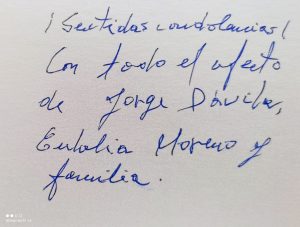 ¡Sentidas condolencias!
Con todo el afecto
de Jorge Dávila,
Eulalia Moreno y
familia.